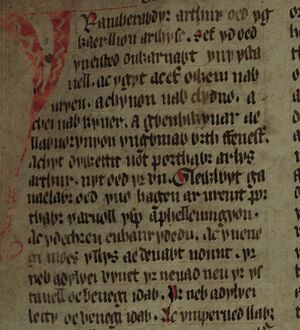 Yr amherawdyr arthur oed yg
kaer llion arwysc. Sef yd oed
yn eisted diwarnawt yn y ysta
uell. ac ygyt ac ef owein uab
uryen. a chynon uab clydno. a
chei uab kyner. a gwenhwyuar ae
llawuorynyon yn gwniaw wrth ffenestr.
a chyt dywettit uot porthawr ar lys
arthur. nyt oed yr vn. Glewlwyt ga
uaeluawr oed yno hagen ar ureint por
thawr y aruoll ysp a phellennigyon.
ac y dechreu enrydedu. ac y uene
gi moes y llys ae deuawt udunt. yr
neb a dylyei vynet yr neuad neu yr ys
tauell oe venegi idaw. Yr neb a dylyei
letty oe benegi idaw. Ac ymperued llawr